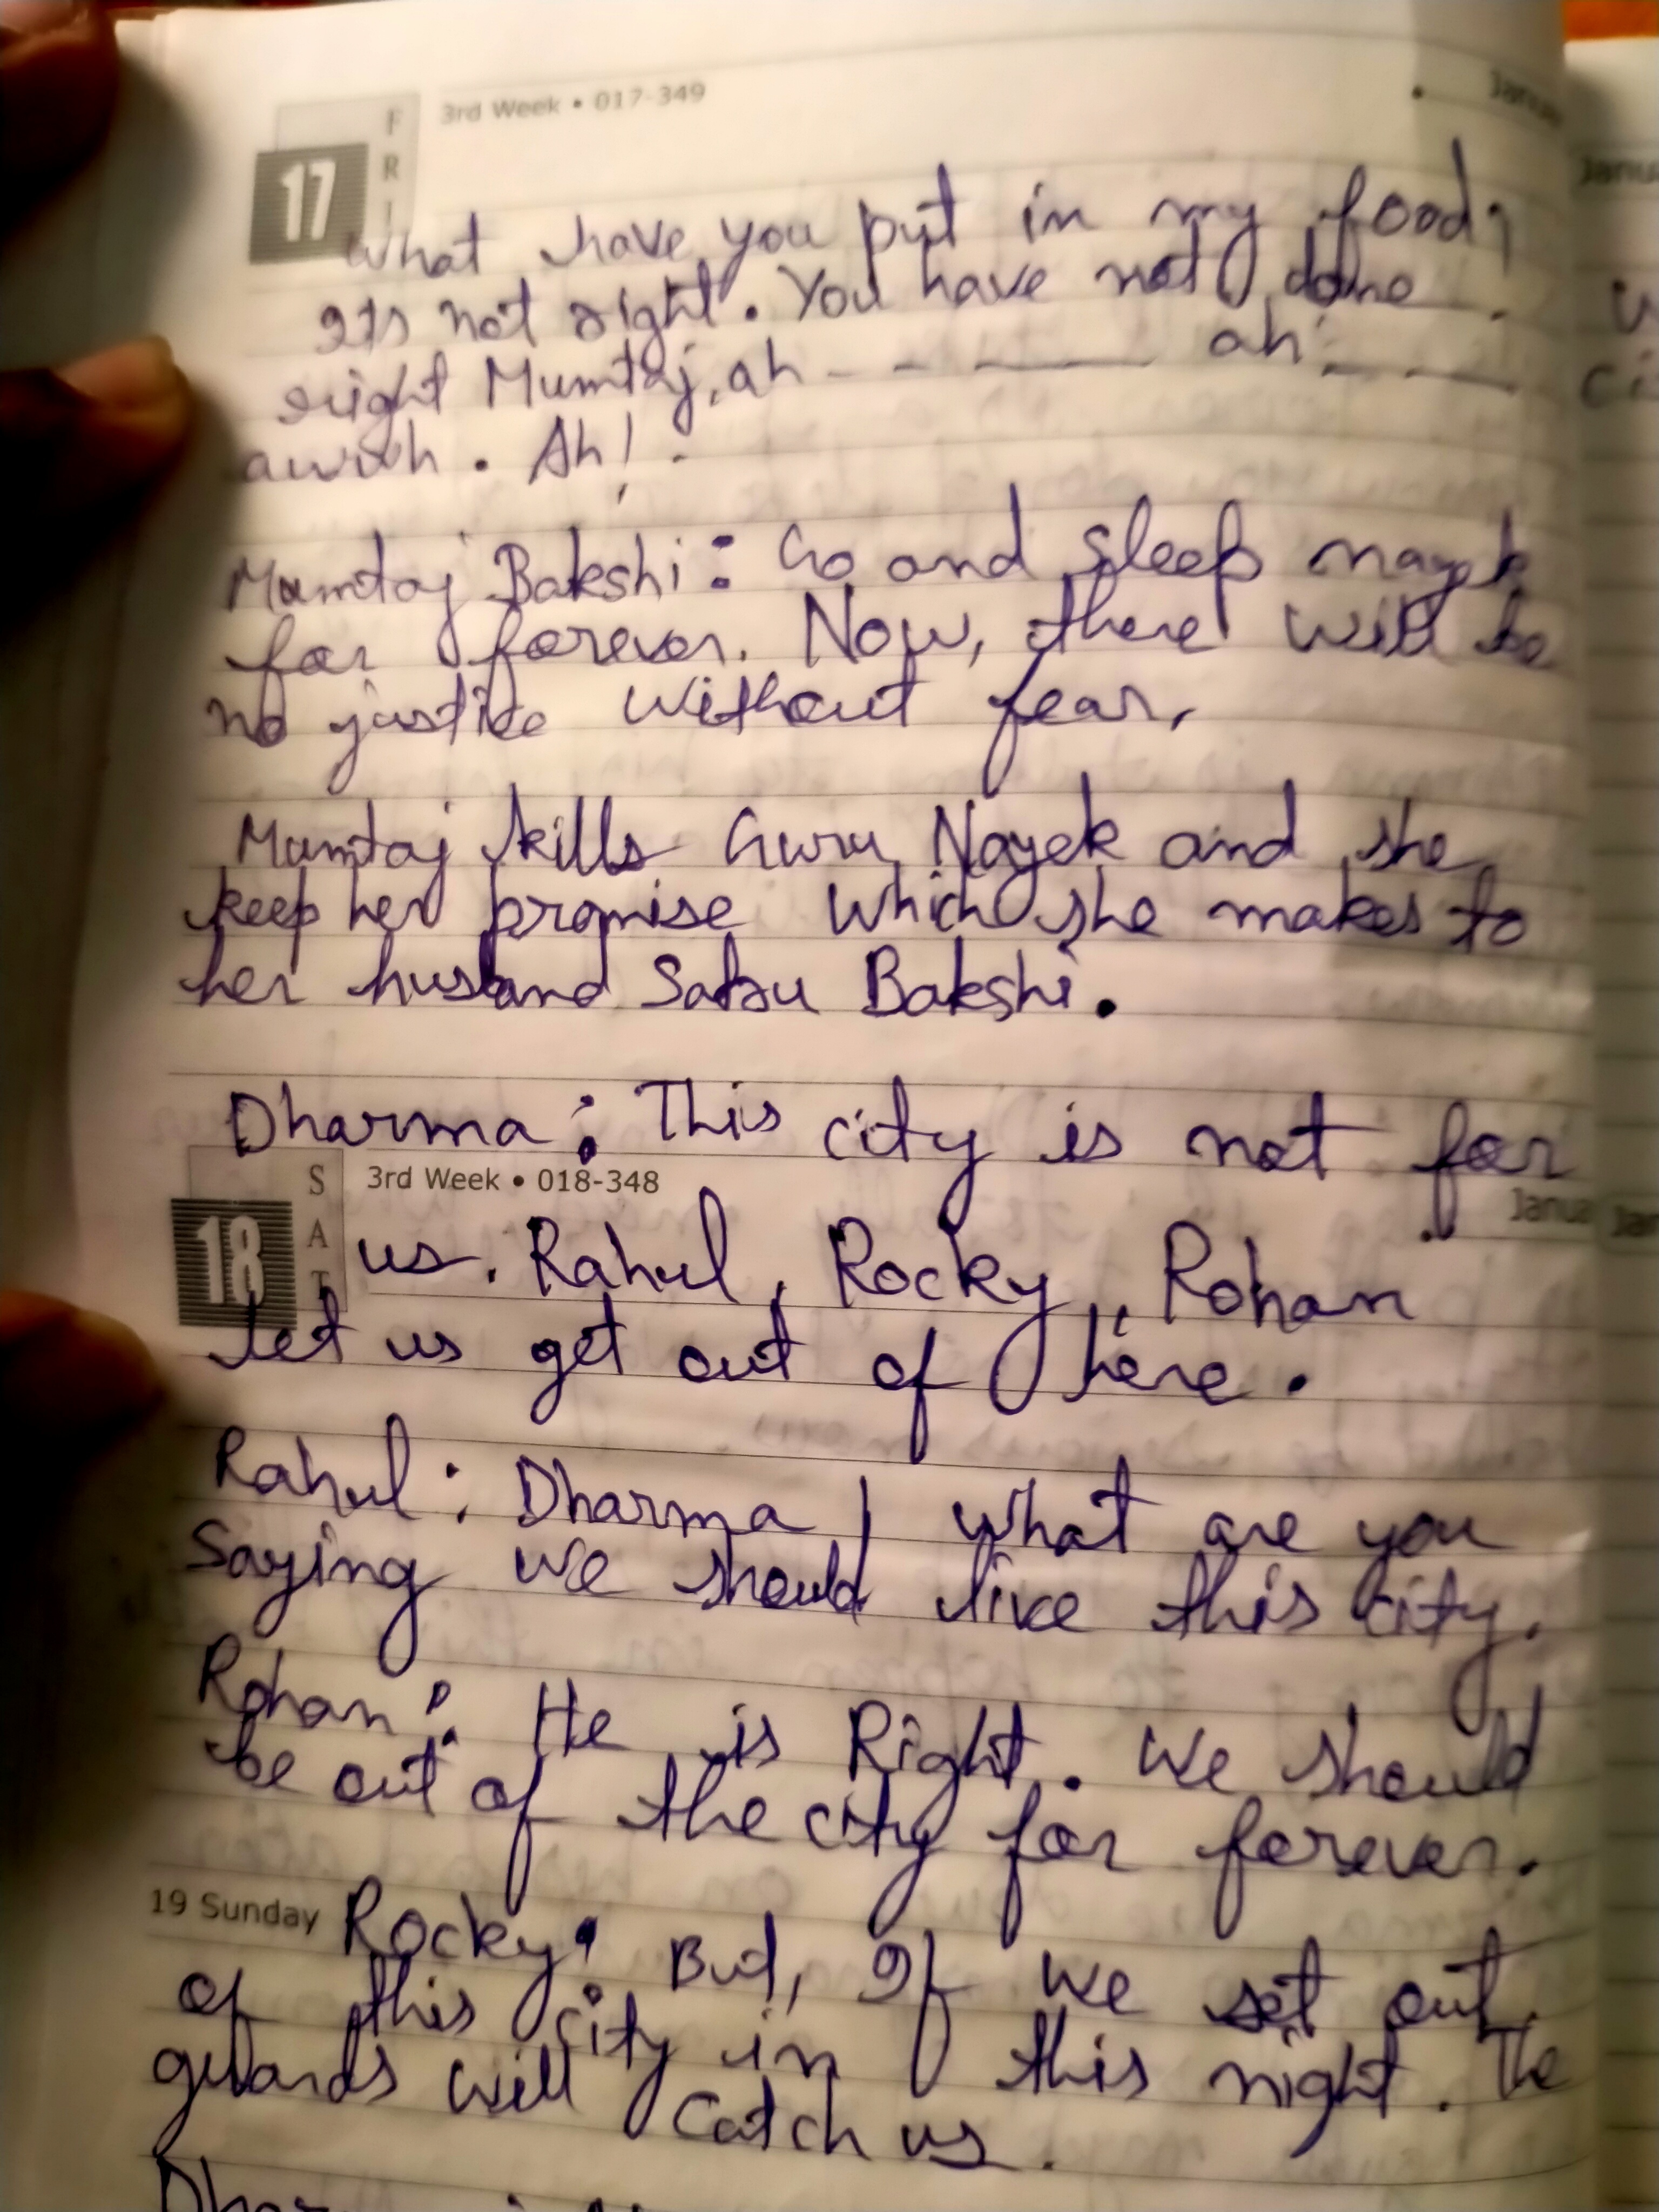 3rd Week • 017-349
FRI
17
What have you put in my food,
Its not right. You have not done
right Mumtaj, ah - - - — — ah - - —
Ah!
Mumtaj Bakshi: Go and sleep nayek
for forever. Now, there will be
no justice without fear,
Mumtaj kills Guru Nayek and she
keep her promise which she makes to
her husband Sabu Bakshi.
Dharma: This city is not for
SAT
3rd Week • 018-348
18
us. Rahul, Rocky, Rohan
let us get out of here.
Rahul: Dharma! what are you
saying we should live this city.
Rohan: He is Right. We should
be out of the city for forever.
19 Sunday
Rocky: But, If we set out
of this city in this night. The
guards will catch us.